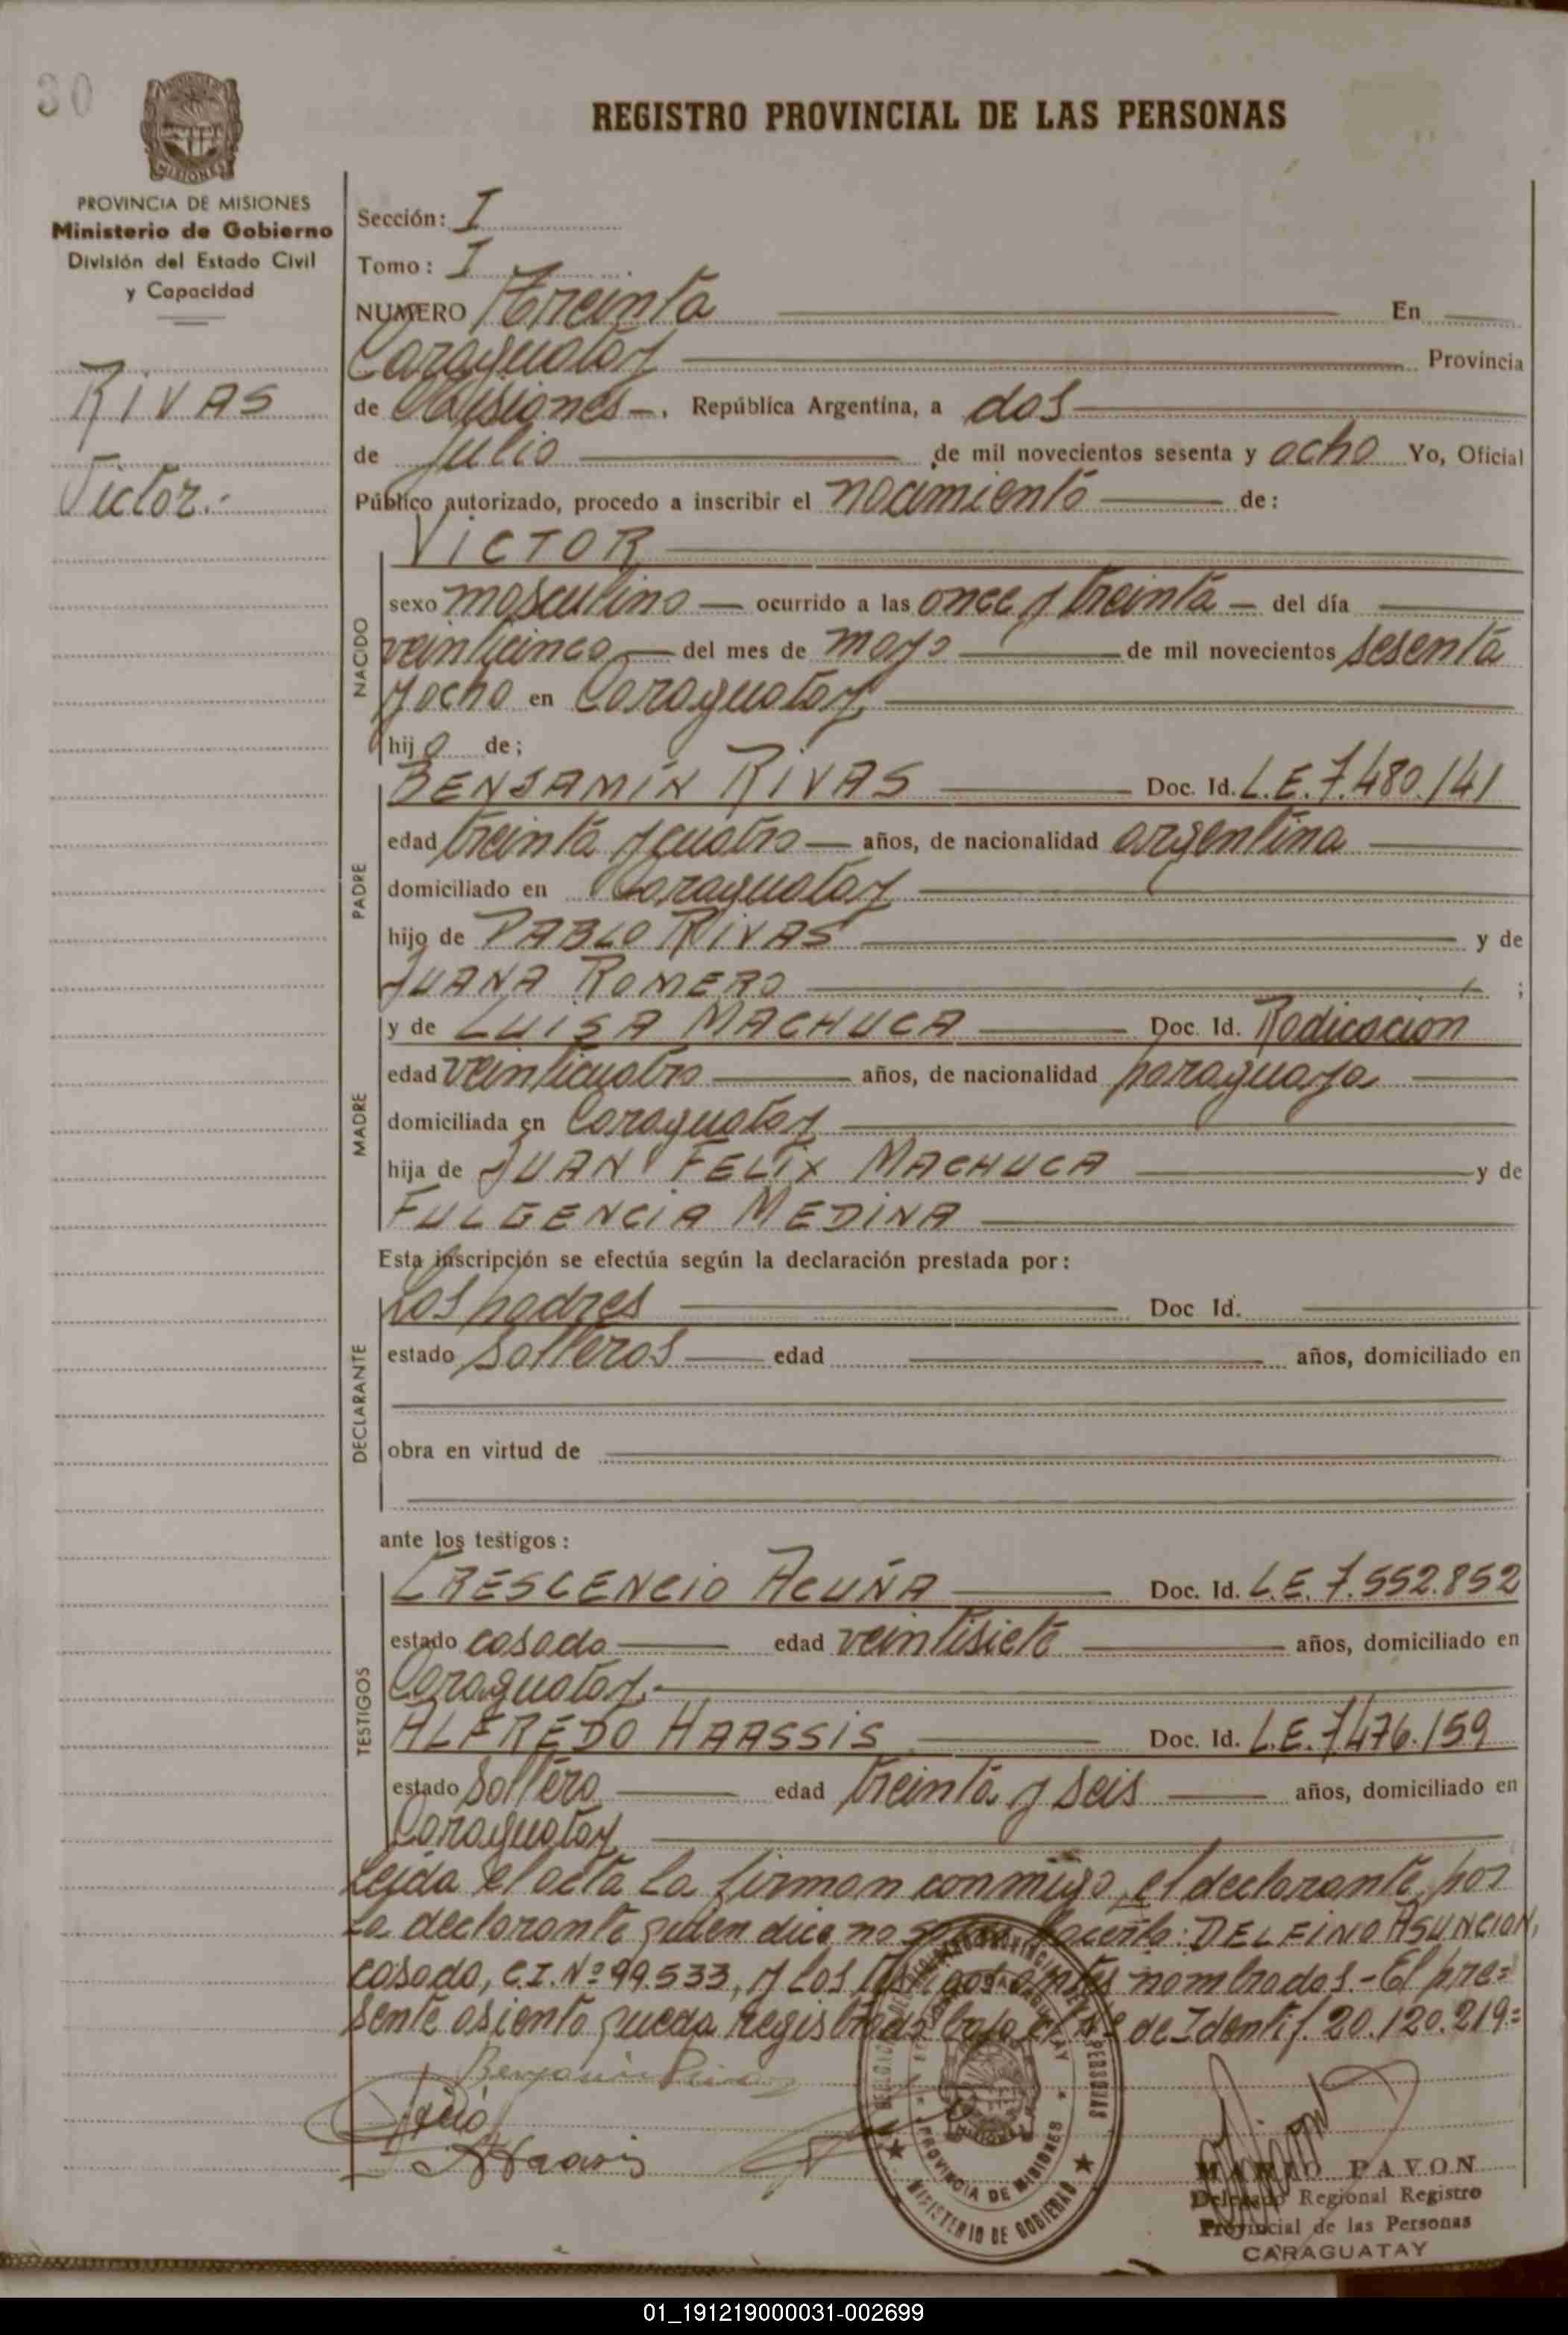 30
MISIONES
REGISTRO PROVINCIAL DE LAS PERSONAS
PROVINCIA DE MISIONES
Ministerio de Gobierno
División del Estado Civil
y Capacidad
RIVAS
Victor.-
Sección: I
Tomo: I
NUMERO Treinta En
Caraguatay Provincia
de Misiones -. República Argentina, a dos
de julio de mil novecientos sesenta y ocho Yo, Oficial
Público autorizado, procedo a inscribir el nacimiento de:
VICTOR
NACIDO
sexo masculino ocurrido a las once y treinta del día
veinticinco del mes de mayo de mil novecientos sesenta
y ocho en Caraguatay
hijo de;
BENJAMIN RIVAS Doc. Id. L.E. 7.480.141
PADRE
edad treinta y cuatro años, de nacionalidad argentina
domiciliado en Caraguatay
hijo de PABLO RIVAS y de
JUANA ROMERO ;
y de LUISA MACHUCA Doc. Id. Radicacion
MADRE
edad veinticuatro años, de nacionalidad paraguaya
domiciliada en Caraguatay
hija de JUAN FELIX MACHUCA y de
FULGENCIA MEDINA
Esta inscripción se efectúa según la declaración prestada por:
Los padres Doc Id.
DECLARANTE
estado Solteros edad años, domiciliado en
obra en virtud de
ante los testigos:
CRESCENCIO ACUÑA Doc. Id. L.E. 7.552.852
TESTIGOS
estado casado edad veintisiete años, domiciliado en
Caraguatay.-
ALFREDO HAASSIS Doc. Id. L.E. 7.476.159
estado Soltero edad treinta y seis años, domiciliado en
Caraguatay
Leida el acta la firman conmigo, el declarante, por
la declarante quien dice no saber hacerlo: DELFINO ASUNCION,
casado, C.I. Nº 99.533, y los testigos antes nombrados.- El pre=
sente asiento queda registrado bajo el Nº de Identif. 20.120.219=
Benjamin Rivas
PROVINCIA DE MISIONES
MINISTERIO DE GOBIERNO
MARIO PAVON
Delegado Regional Registro
Provincial de las Personas
CARAGUATAY
01_191219000031-002699